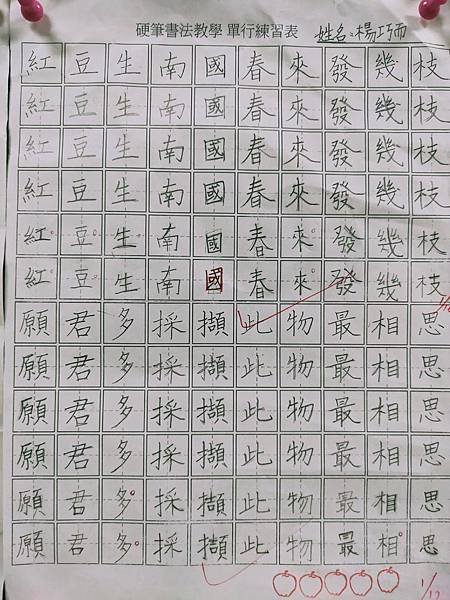 硬筆書法教學 單行練習表 姓名:楊巧雨
紅豆生南國春來發幾枝
紅豆生南國春來發幾枝
紅豆生南國春來發幾枝
紅豆生南國春來發幾枝
紅豆生南國春來發幾枝
紅豆生南國春來發幾枝
願君多採擷此物最相思
願君多採擷此物最相思
願君多採擷此物最相思
願君多採擷此物最相思
願君多採擷此物最相思
願君多採擷此物最相思